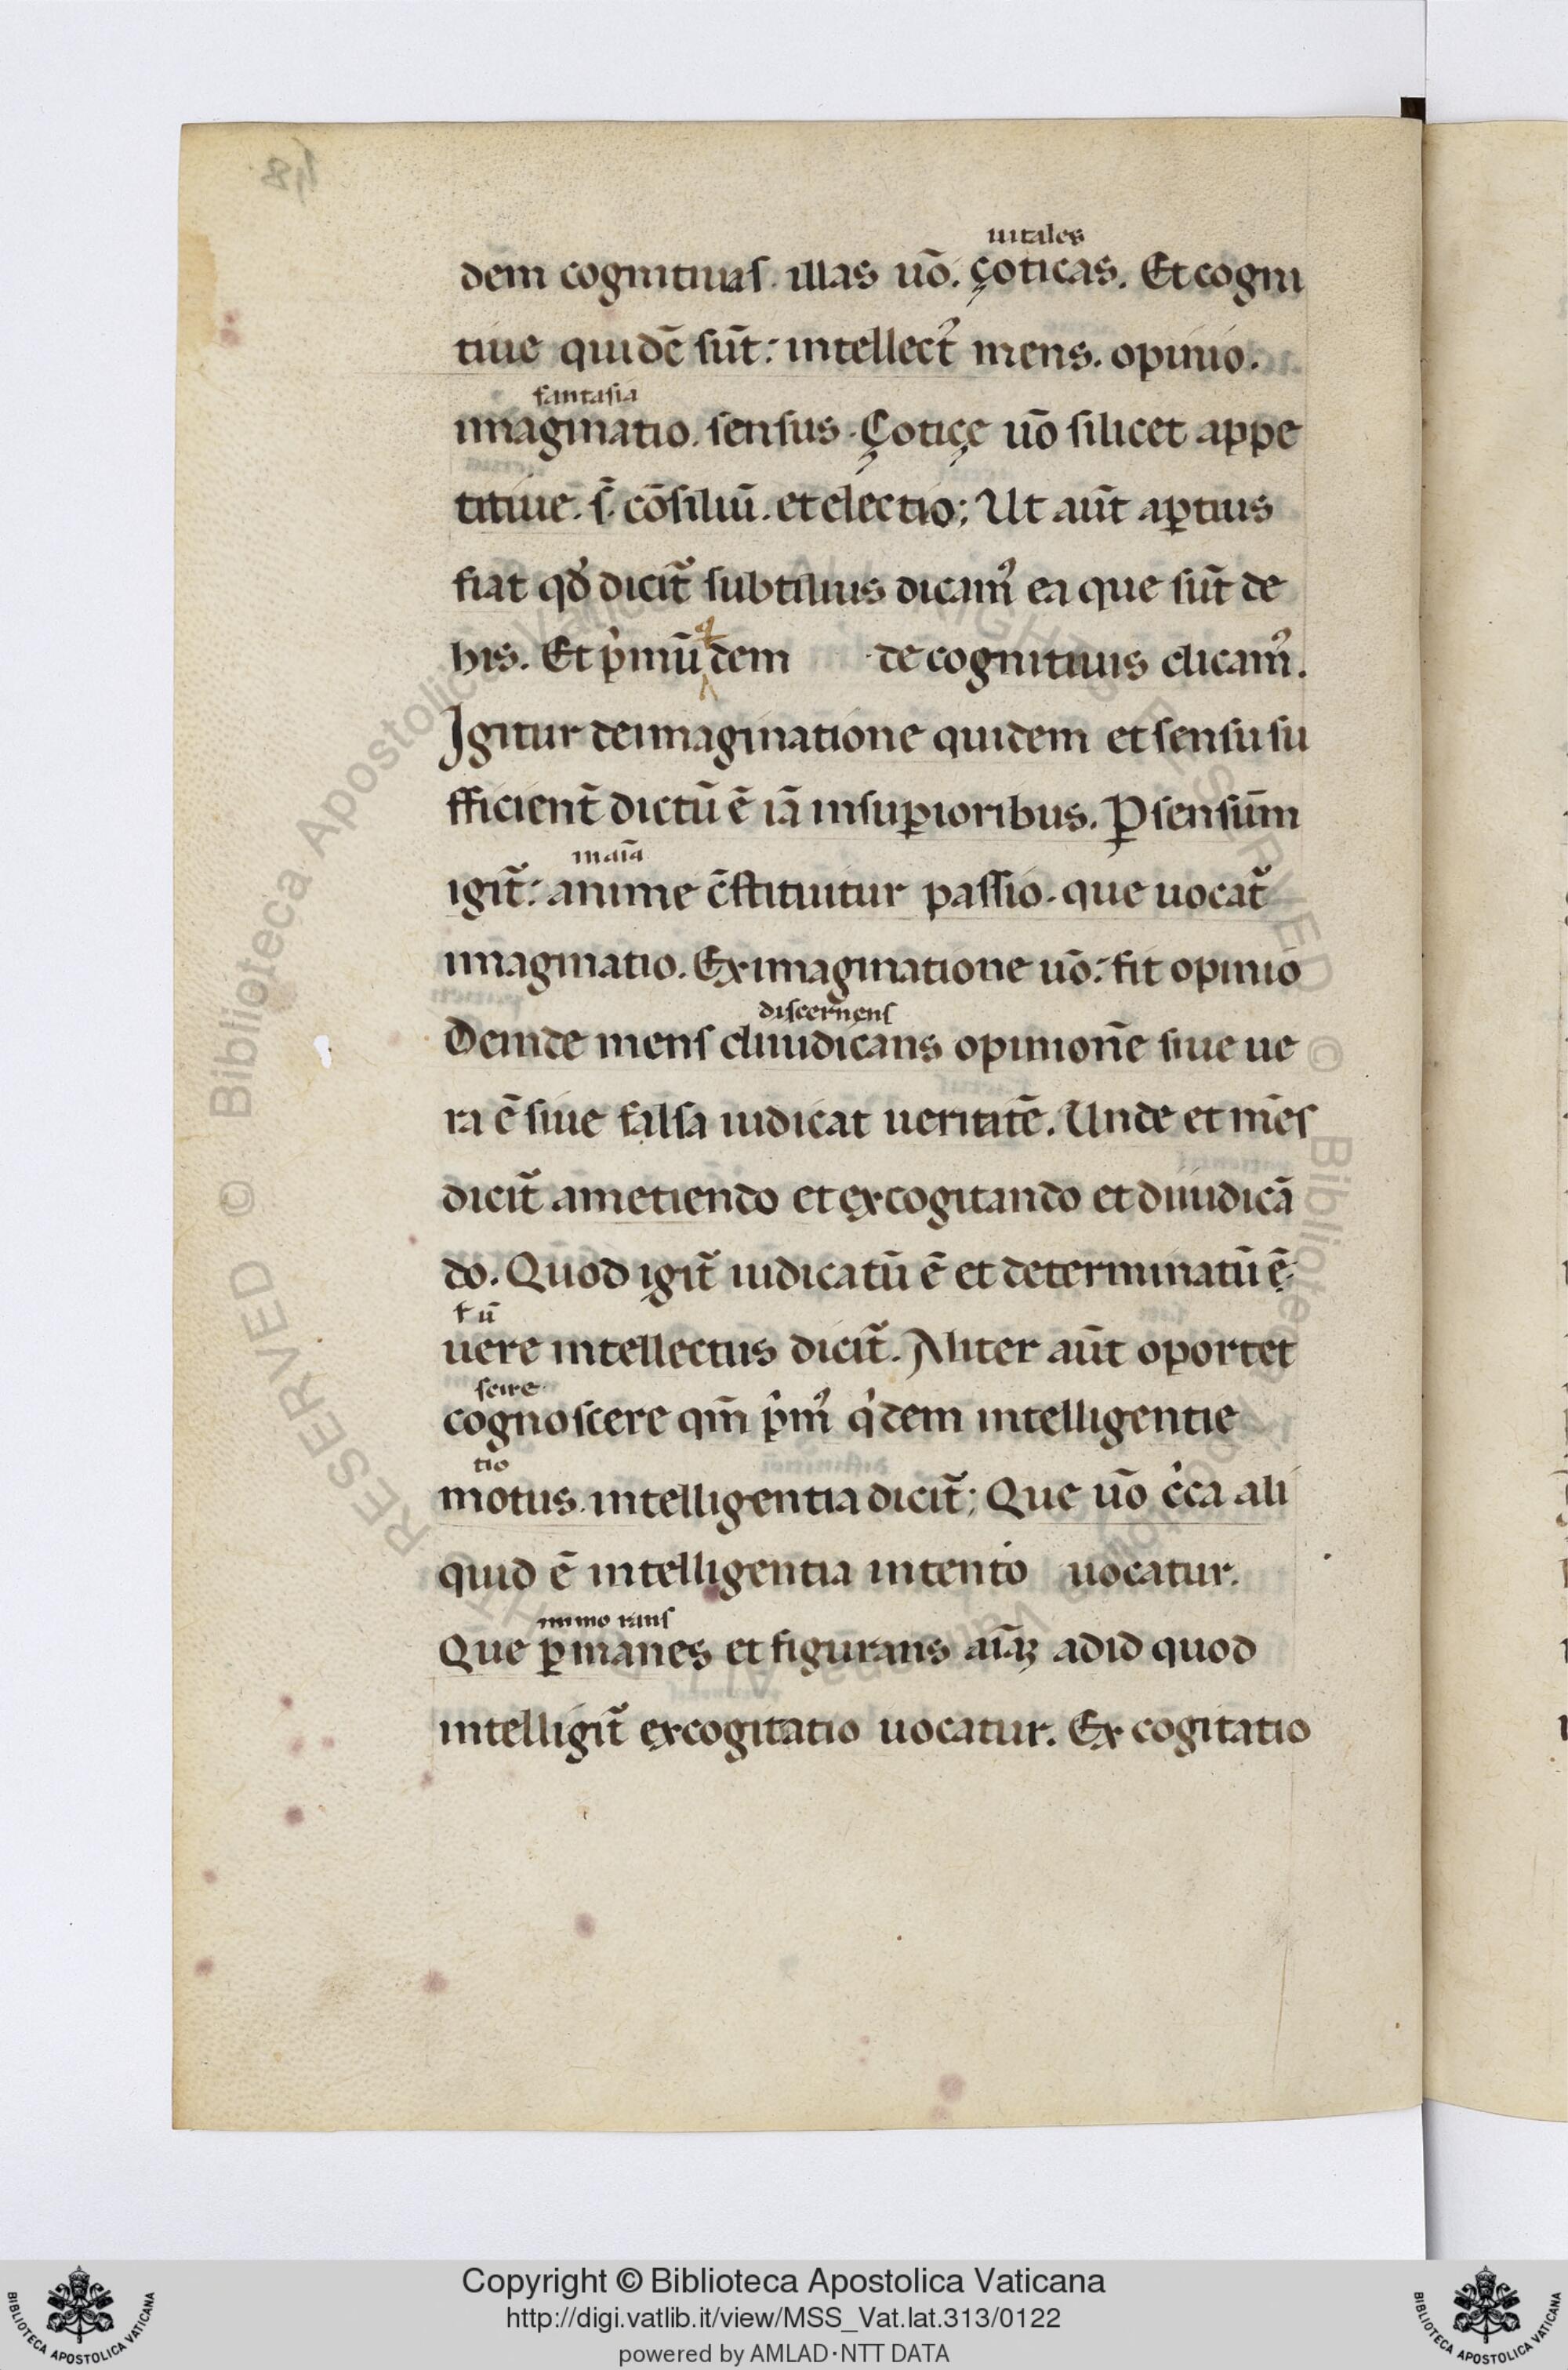 uitales
dem cognitiuas. illas uo᷃. çoticas. Et cogni
tiue quidē sūt: intellectꝰ mens. opinio.
fantasia
imaginatio. sensus. Çotiçe uō silicet appe
titiue. s̄. cōsiliū. et electio; Ut aūt aꝑtius
fiat qd̓ dicit᷑ subtilius dicamꝰ ea que sūt de
his. Et pͥmū qͥdem de cognitiuis dicamꝰ.
Igitur de imaginatione quidem et sensu su
fficient̄ dictū ē iā insuꝑioribus. Ꝑ sensūm
maiā
igit᷑: anime c̄stituitur passio. que uocat᷑
imaginatio. Ex imaginatione uō: fit opinio
discernens
Deinde mens diiudicans opinionē siue ue
ra ē siue falsa iudicat ueritatē. Unde et mēs
dicit᷑ ametiendo et excogitando et diiudicā
do. Quod igit᷑ iudicatū ē et determinatū ē
f uͫ
uere intellectus dicit᷑. Aliter aūt oportet
scire
cognoscere qm̄ pͥmꝰ qͥdem intelligentie
tio
motus. intelligentia dicit᷑; Que uō cͥca ali
quid ē intelligentia intentio uocatur.
Que ꝑmanes et figurans aīaꝫ ad id quod
intelligit᷑ excogitatio uocatur. Ex cogitatio
Copyright © Biblioteca Apostolica Vaticana
http://digi.vatlib.it/view/MSS_Vat.lat.313/0122
powered by AMLAD·NTT DATA